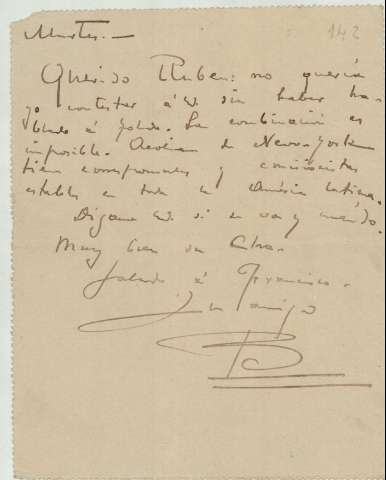 Martes.— 142
Querido Ruben: no quería
yo contestar á V. sin haber ha-
blado á . La combinación es
imposible. Aeolian de New-York
tiene corresponsales y
estables en toda la América latina.
Digame V. si se va y cuándo.
Muy bien su
Saludo á Francisca.
Su amigo